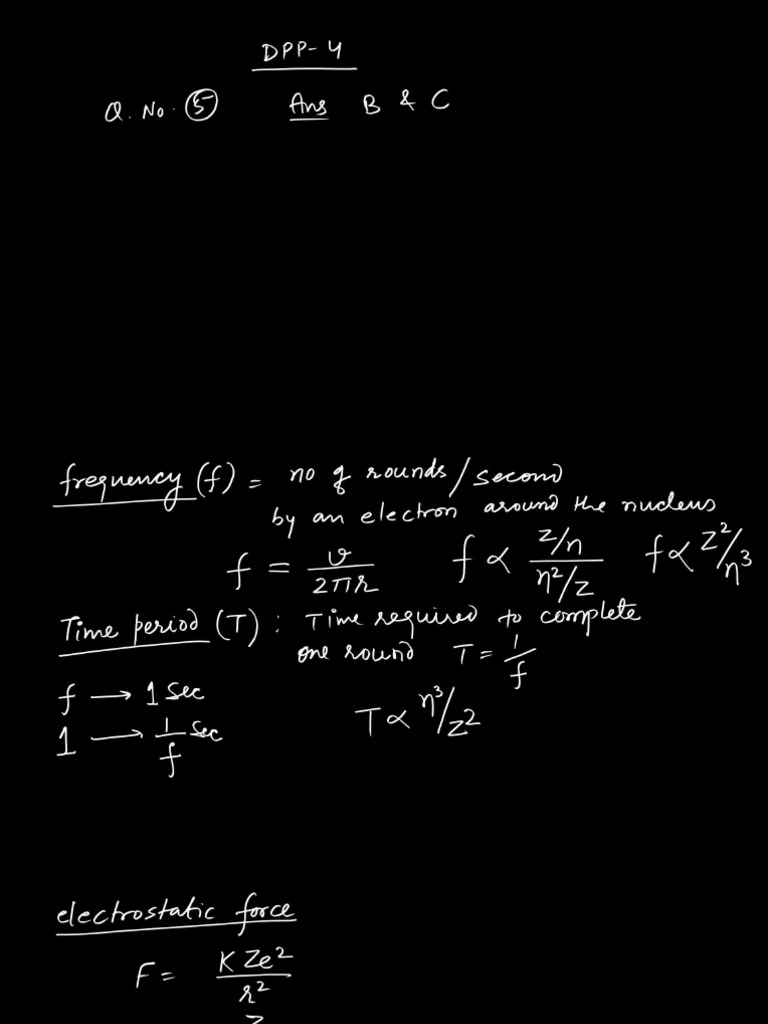 DPP-4
Q. No. 5 Ans B & C
frequency (f) = no of rounds/second
by an electron around the nucleus
f = v/2πr f ∝ (z/n)/(n²/z) f ∝ z²/n³
Time period (T) : Time required to complete
one round T = 1/f
f → 1 sec
1 → 1/f sec T ∝ n³/z²
electrostatic force
F = KZe²/r²